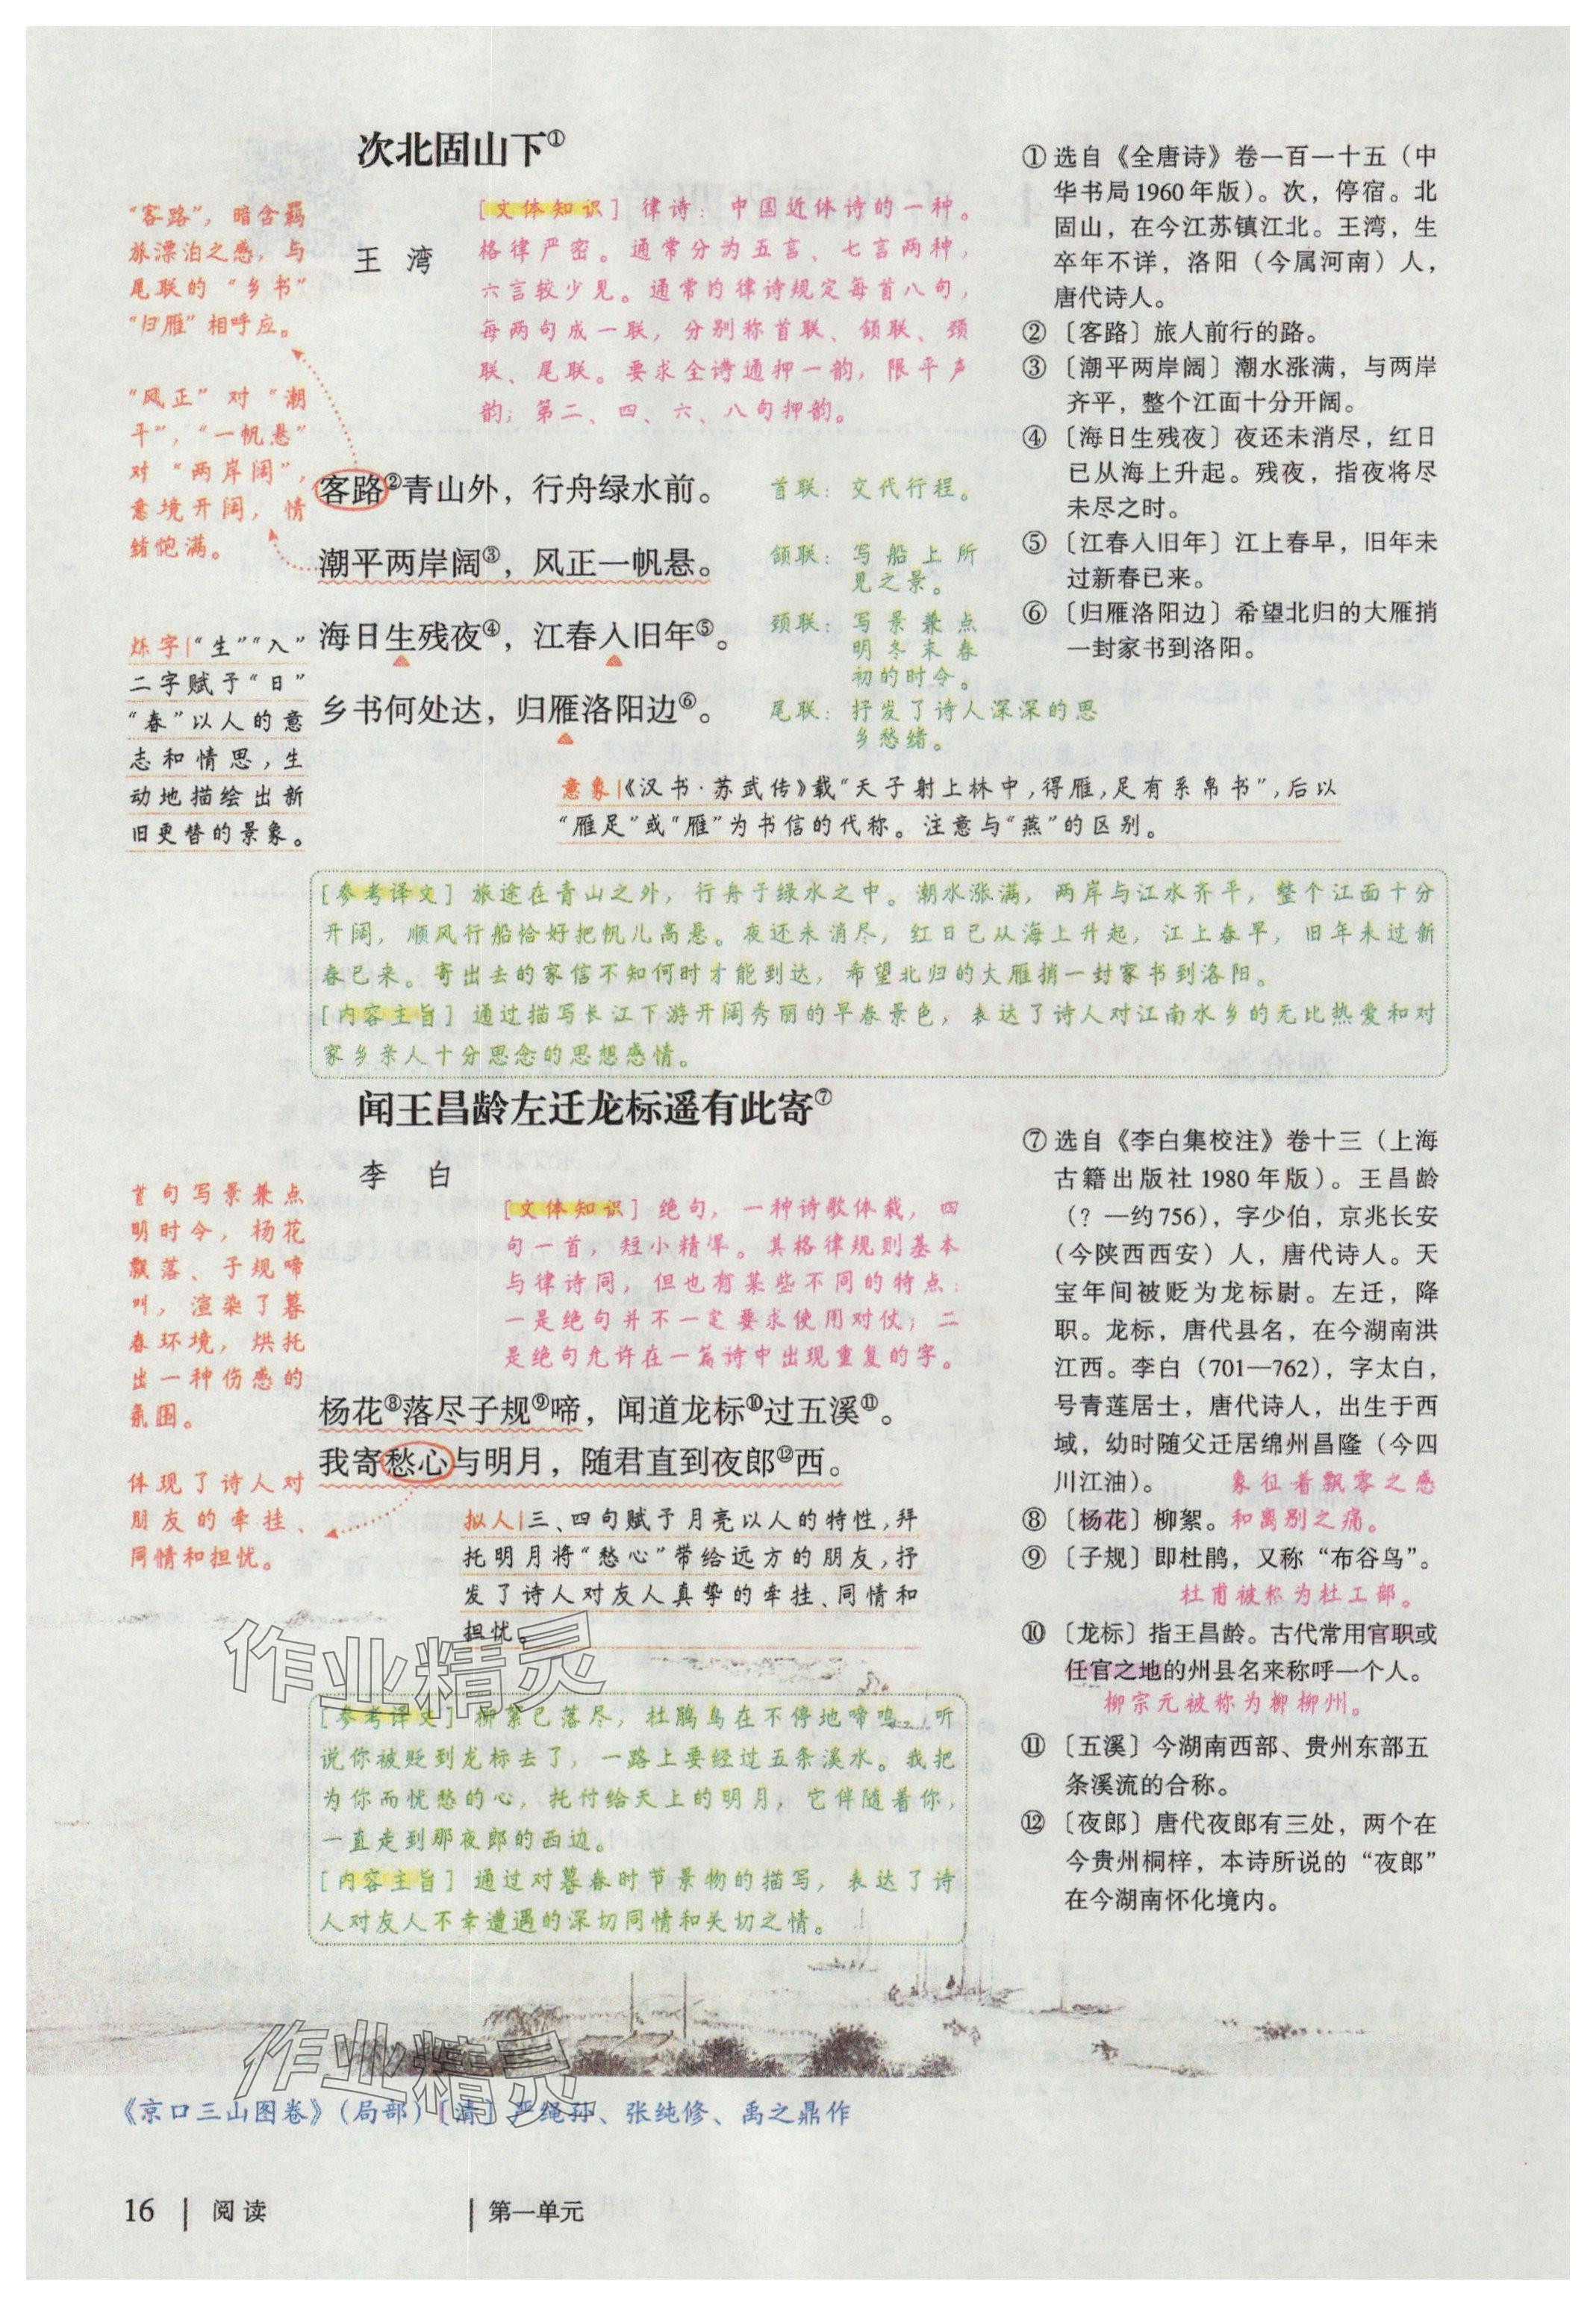 次北固山下①
王 湾
[文体知识] 律诗：中国近体诗的一种。
格律严密。通常分为五言、七言两种，
六言较少见。通常的律诗规定每首八句，
每两句成一联，分别称首联、颔联、颈
联、尾联。要求全诗通押一韵，限平声
韵；第二、四、六、八句押韵。
“客路”，暗含羁
旅漂泊之感，与
尾联的“乡书”
“归雁”相呼应。
“风正”对“潮
平”，“一帆悬”
对“两岸阔”，
意境开阔，情
绪饱满。
炼字|“生”“入”
二字赋予“日”
“春”以人的意
志和情思，生
动地描绘出新
旧更替的景象。
客路②青山外，行舟绿水前。
潮平两岸阔③，风正一帆悬。
海日生残夜④，江春入旧年⑤。
乡书何处达，归雁洛阳边⑥。
首联：交代行程。
颔联：写船上所
见之景。
颈联：写景兼点
明冬末春
初的时令。
尾联：抒发了诗人深深的思
乡愁绪。
意象|《汉书·苏武传》载“天子射上林中，得雁，足有系帛书”，后以
“雁足”或“雁”为书信的代称。注意与“燕”的区别。
[参考译文] 旅途在青山之外，行舟于绿水之中。潮水涨满，两岸与江水齐平，整个江面十分
开阔，顺风行船恰好把帆儿高悬。夜还未消尽，红日已从海上升起，江上春早，旧年未过新
春已来。寄出去的家信不知何时才能到达，希望北归的大雁捎一封家书到洛阳。
[内容主旨] 通过描写长江下游开阔秀丽的早春景色，表达了诗人对江南水乡的无比热爱和对
家乡亲人十分思念的思想感情。
① 选自《全唐诗》卷一百一十五（中
华书局1960年版）。次，停宿。北
固山，在今江苏镇江北。王湾，生
卒年不详，洛阳（今属河南）人，
唐代诗人。
② 〔客路〕旅人前行的路。
③ 〔潮平两岸阔〕潮水涨满，与两岸
齐平，整个江面十分开阔。
④ 〔海日生残夜〕夜还未消尽，红日
已从海上升起。残夜，指夜将尽
未尽之时。
⑤ 〔江春入旧年〕江上春早，旧年未
过新春已来。
⑥ 〔归雁洛阳边〕希望北归的大雁捎
一封家书到洛阳。
闻王昌龄左迁龙标遥有此寄⑦
李 白
[文体知识] 绝句，一种诗歌体裁，四
句一首，短小精悍。其格律规则基本
与律诗同，但也有某些不同的特点：
一是绝句并不一定要求使用对仗；二
是绝句允许在一篇诗中出现重复的字。
首句写景兼点
明时令，杨花
飘落、子规啼
叫，渲染了暮
春环境，烘托
出一种伤感的
氛围。
体现了诗人对
朋友的牵挂、
同情和担忧。
杨花⑧落尽子规⑨啼，闻道龙标⑩过五溪⑪。
我寄愁心与明月，随君直到夜郎⑫西。
拟人|三、四句赋予月亮以人的特性，拜
托明月将“愁心”带给远方的朋友，抒
发了诗人对友人真挚的牵挂、同情和
担忧。
作业精灵
[参考译文] 柳絮已落尽，杜鹃鸟在不停地啼鸣，听
说你被贬到龙标去了，一路上要经过五条溪水。我把
为你而忧愁的心，托付给天上的明月，它伴随着你，
一直走到那夜郎的西边。
[内容主旨] 通过对暮春时节景物的描写，表达了诗
人对友人不幸遭遇的深切同情和关切之情。
⑦ 选自《李白集校注》卷十三（上海
古籍出版社1980年版）。王昌龄
（？—约756），字少伯，京兆长安
（今陕西西安）人，唐代诗人。天
宝年间被贬为龙标尉。左迁，降
职。龙标，唐代县名，在今湖南洪
江西。李白（701—762），字太白，
号青莲居士，唐代诗人，出生于西
域，幼时随父迁居绵州昌隆（今四
川江油）。 象征着飘零之感
⑧ 〔杨花〕柳絮。和离别之痛。
⑨ 〔子规〕即杜鹃，又称“布谷鸟”。
杜甫被称为杜工部。
⑩ 〔龙标〕指王昌龄。古代常用官职或
任官之地的州县名来称呼一个人。
柳宗元被称为柳柳州。
⑪ 〔五溪〕今湖南西部、贵州东部五
条溪流的合称。
⑫ 〔夜郎〕唐代夜郎有三处，两个在
今贵州桐梓，本诗所说的“夜郎”
在今湖南怀化境内。
作业精灵
《京口三山图卷》（局部）〔清〕严绳孙、张纯修、禹之鼎作
16 | 阅读 | 第一单元